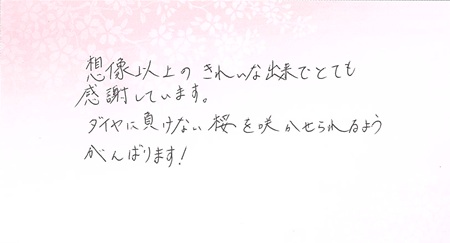 想像以上の きれいな出来でとても
感謝しています。
ダイヤに負けない桜を咲かせられるよう
がんばります!